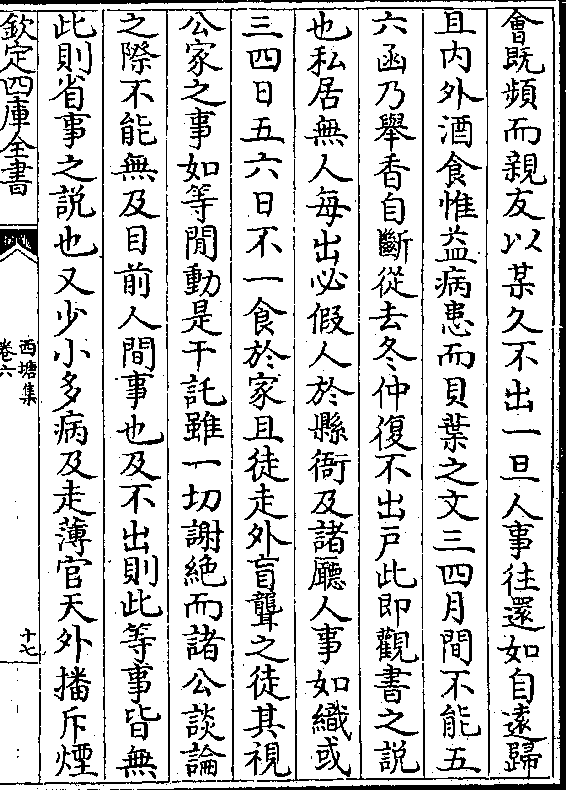 會既頻而親友以某久不出一旦人事往還如自遠歸
且内外酒食惟益病患而貝葉之文三四月間不能五
六函乃舉香自斷從去冬仲復不出戸此即觀書之説
也私居無人每出必假人於縣衙及諸廳人事如織或
三四日五六日不一食於家且徒走外盲聾之徒其視
公家之事如等閒動是干託雖一切謝絶而諸公談論
之際不能無及目前人間事也及不出則此等事皆無
此則省事之説也又少小多病及走薄官天外播斥煙
欽定四庫全書
西塘集
卷六
十七